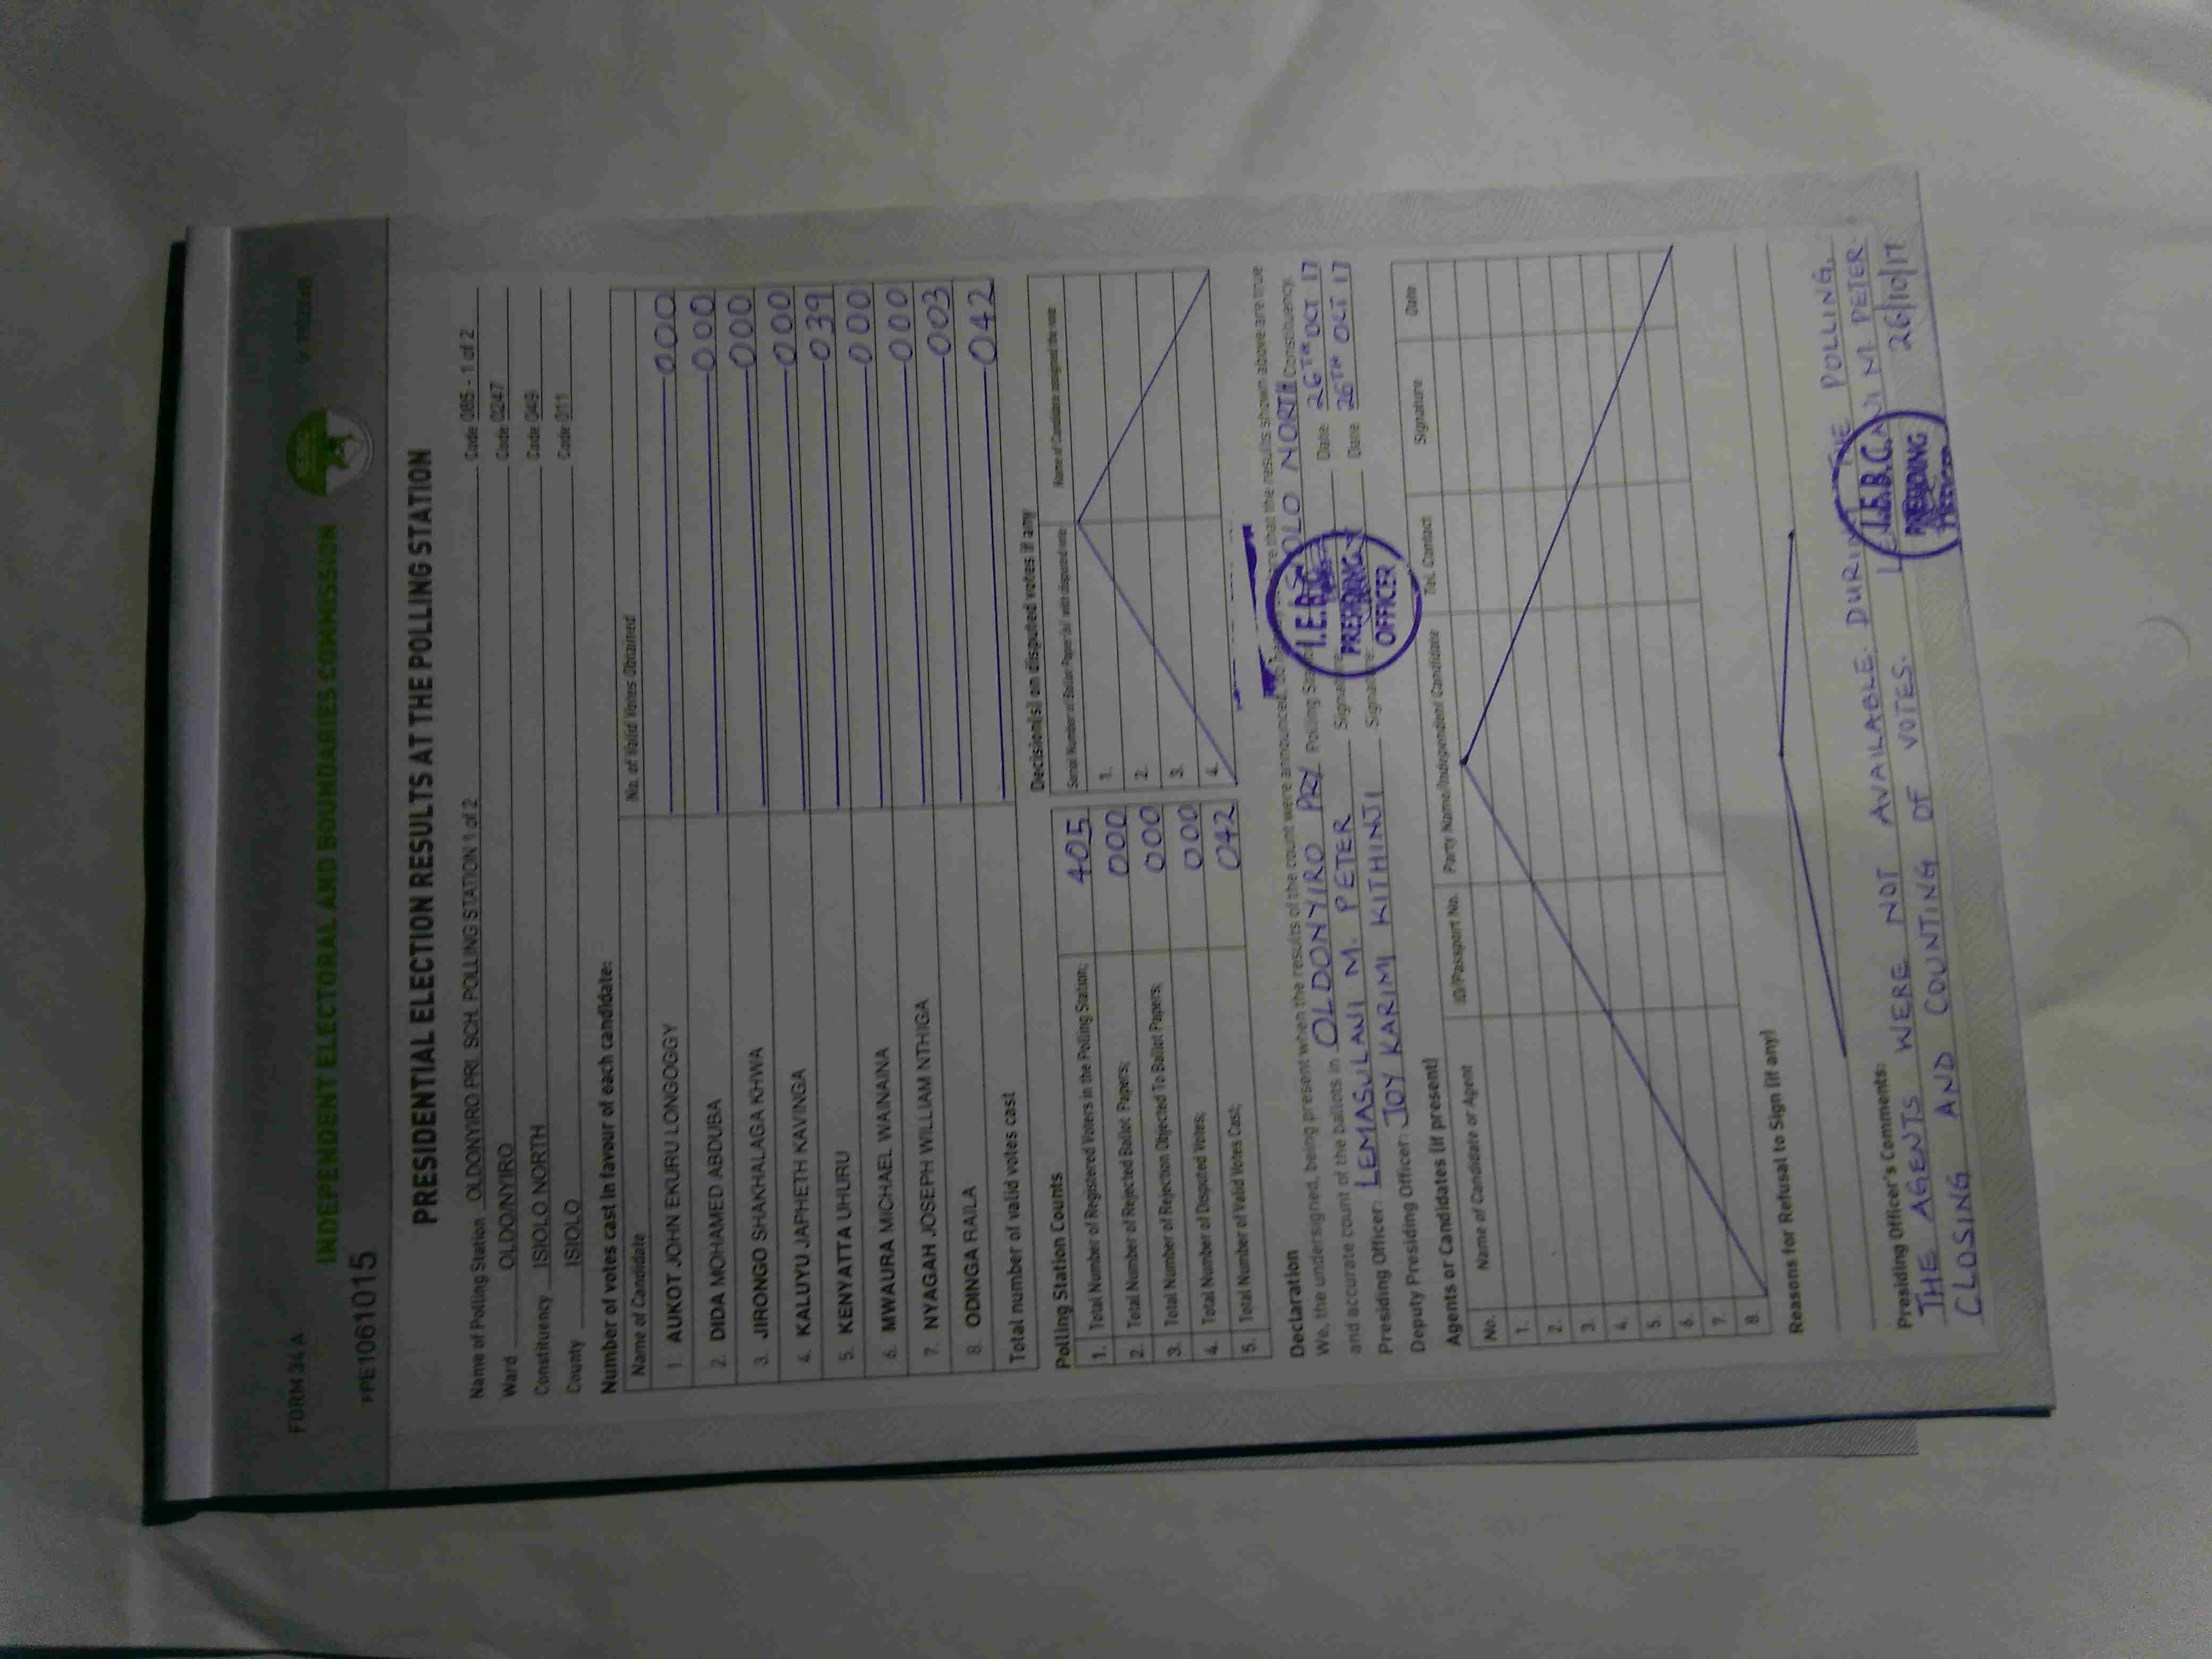 FORM 34 A
INDEPENDENT ELECTORAL AND BOUNDARIES COMMISSION
PPE1061015
PRESIDENTIAL ELECTION RESULTS AT THE POLLING STATION
Name of Polling Station OLDONYIRO PRI. SCH. POLLING STATION 1 of 2 Code 085 - 1 of 2
Ward OLDO/NYIRO Code 0247
Constituency ISIOLO NORTH Code 049
County ISIOLO Code 011
Number of votes cast in favour of each candidate:
Name of Candidate No. of Valid Votes Obtained
1. AUKOT JOHN EKURU LONGOGGY 000
2. DIDA MOHAMED ABDUBA 000
3. JIRONGO SHAKHALAGA KHWA 000
4. KALUYU JAPHETH KAVINGA 000
5. KENYATTA UHURU 039
6. MWAURA MICHAEL WAINAINA 000
7. NYAGAH JOSEPH WILLIAM NTHIGA 000
8. ODINGA RAILA 003
Total number of valid votes cast 042
Polling Station Counts
1. Total Number of Registered Voters in the Polling Station; 405
2. Total Number of Rejected Ballot Papers; 000
3. Total Number of Rejection Objected To Ballot Papers; 000
4. Total Number of Disputed Votes; 000
5. Total Number of Valid Votes Cast; 042
Decision(s) on disputed votes if any
Serial Number of Ballot Paper(s) with disputed vote Name of Candidate assigned the vote
1.
2.
3.
4.
Declaration
We, the undersigned, being present when the results of the count were announced, do that the results shown above are true
and accurate count of the ballots in OLDONYIRO PRY. Polling NORTH Constituency.
Presiding Officer: LEMASULANI M. PETER Date 26TH OCT 17
Deputy Presiding Officer: JOY KARIMI KITHINJI Date 26TH OCT 17
I.E.B.C.
PRESIDING
OFFICER
Agents or Candidates (if present)
No. Name of Candidate or Agent ID/Passport No. Party Name/Independent Candidate Tel. Contact Signature Date
1.
2.
3.
4.
5.
6.
7.
8.
Reasons for Refusal to Sign (if any)
Presiding Officer's Comments:
THE AGENTS WERE NOT AVAILABLE DURING THE POLLING,
CLOSING AND COUNTING OF VOTES. M. PETER
26/10/17
I.E.B.C.
PRESIDING